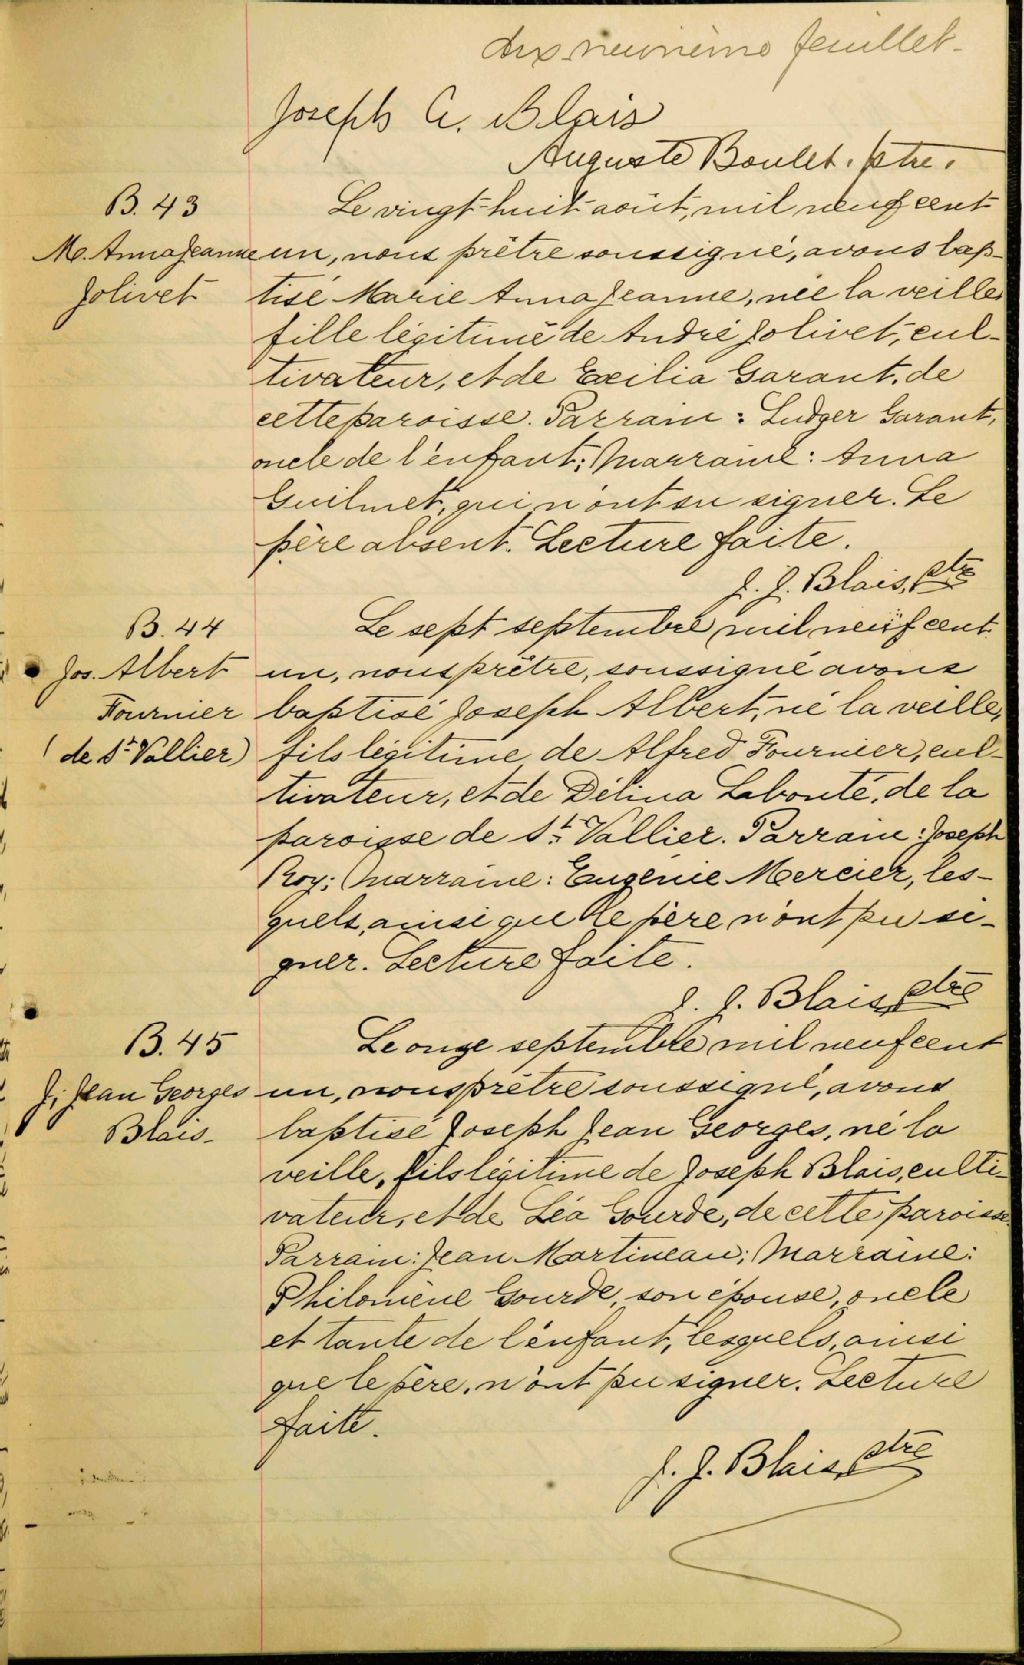 dix-neuvième feuillet.
Joseph A. Blais
Auguste Boulet. ptre.
B. 43
M. Anna Jeanne
Jolivet
Le vingt-huit août, mil neuf cent
un, nous prêtre soussigné, avons bap-
tisé Marie Anna Jeanne, née la veille,
fille légitime de André Jolivet, cul-
tivateur, et de Exilia Garant, de
cette paroisse. Parrain : Ludger Garant,
oncle de l'enfant; Marraine : Anna
Guilmet, qui n'ont su signer. Le
père absent. Lecture faite.
J. J. Blais, ptre
B. 44
Jos. Albert
Fournier
(de St Vallier)
Le sept septembre mil neuf cent
un, nous prêtre, soussigné avons
baptisé Joseph Albert, né la veille,
fils légitime de Alfred Fournier, cul-
tivateur, et de Délina Labonté, de la
paroisse de St Vallier. Parrain : Joseph
Roy; Marraine : Eugénie Mercier, les-
quels, ainsi que le père n'ont pu si-
gner. Lecture faite.
J. J. Blais, ptre
B. 45
J. Jean Georges
Blais
Le onze septembre mil neuf cent
un, nous prêtre soussigné, avons
baptisé Joseph Jean Georges, né la
veille, fils légitime de Joseph Blais, culti-
vateur, et de Léa Gourde, de cette paroisse.
Parrain : Jean Martineau; Marraine :
Philomène Gourde, son épouse, oncle
et tante de l'enfant, lesquels, ainsi
que le père, n'ont pu signer. Lecture
faite.
J. J. Blais, ptre